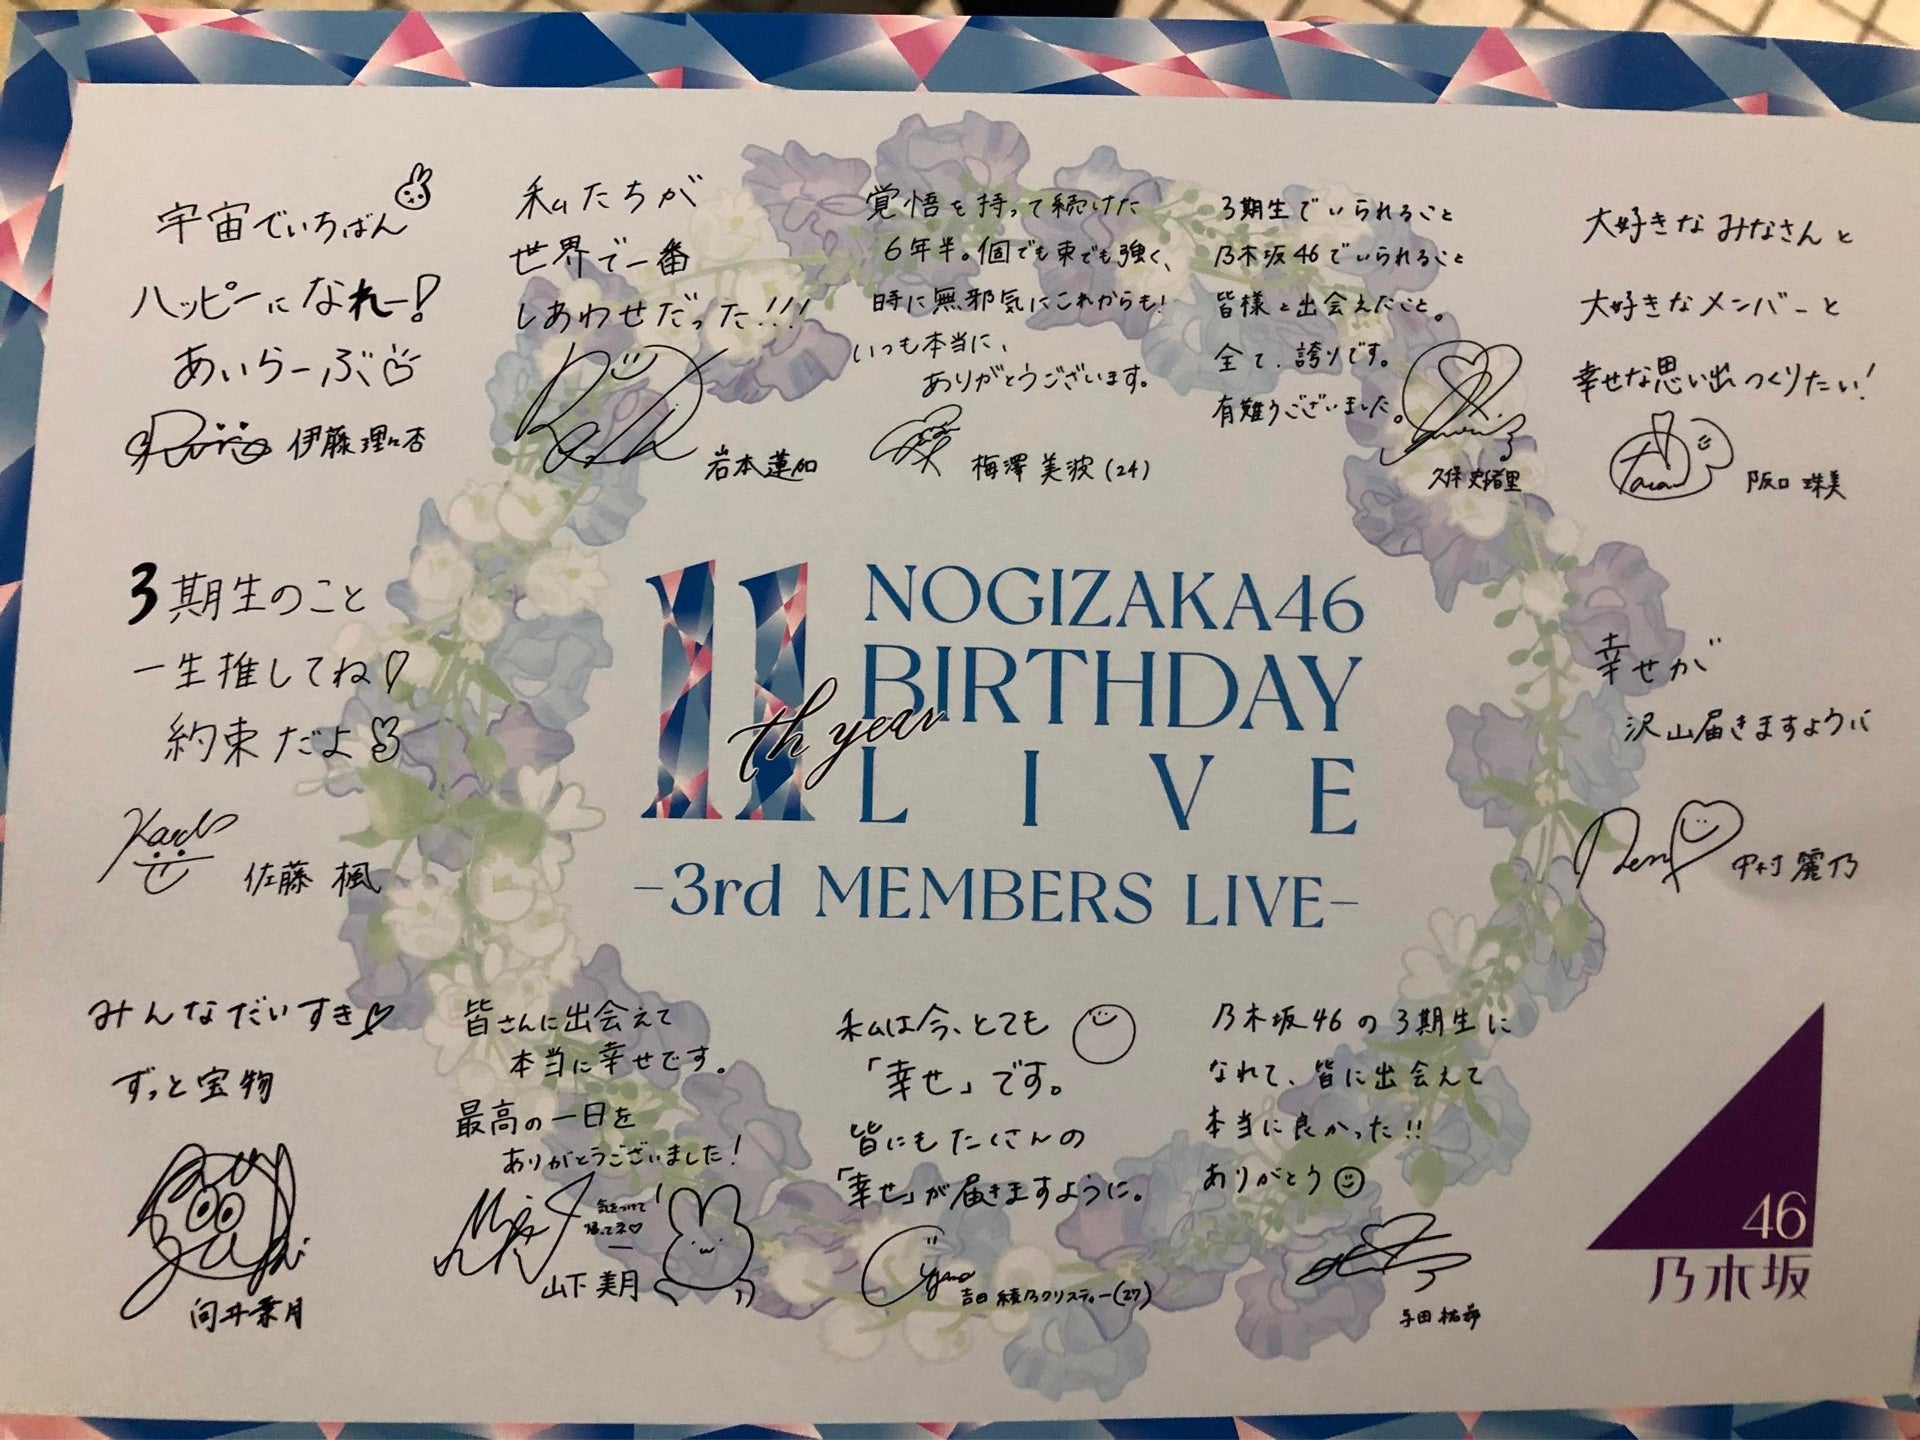 宇宙でいちばん
ハッピーになれー!
あいらーぶ
伊藤理々杏
私たちが
世界で一番
しあわせだった!!!
岩本蓮加
覚悟を持って続けた
6年半。個でも束でも強く、
時に無邪気にこれからも!
いつも本当に、
ありがとうございます。
梅澤美波(24)
3期生でいられること
乃木坂46でいられること
皆様と出会えたこと。
全て、誇りです。
有難うございました。
久保史緒里
大好きなみなさんと
大好きなメンバーと
幸せな思い出つくりたい!
阪口珠美
3期生のこと
一生推してね♡
約束だよ
佐藤楓
11th year
NOGIZAKA46
BIRTHDAY
LIVE
-3rd MEMBERS LIVE-
幸せが
沢山届きますように
中村麗乃
みんなだいすき♡
ずっと宝物
向井葉月
皆さんに出会えて
本当に幸せです。
最高の一日を
ありがとうございました!
気をつけて
帰ってネ♡
山下美月
私は今、とても
「幸せ」です。
皆にもたくさんの
「幸せ」が届きますように。
吉田綾乃クリスティー(27)
乃木坂46の3期生に
なれて、皆に出会えて
本当に良かった!!
ありがとう
与田祐希
46
乃木坂